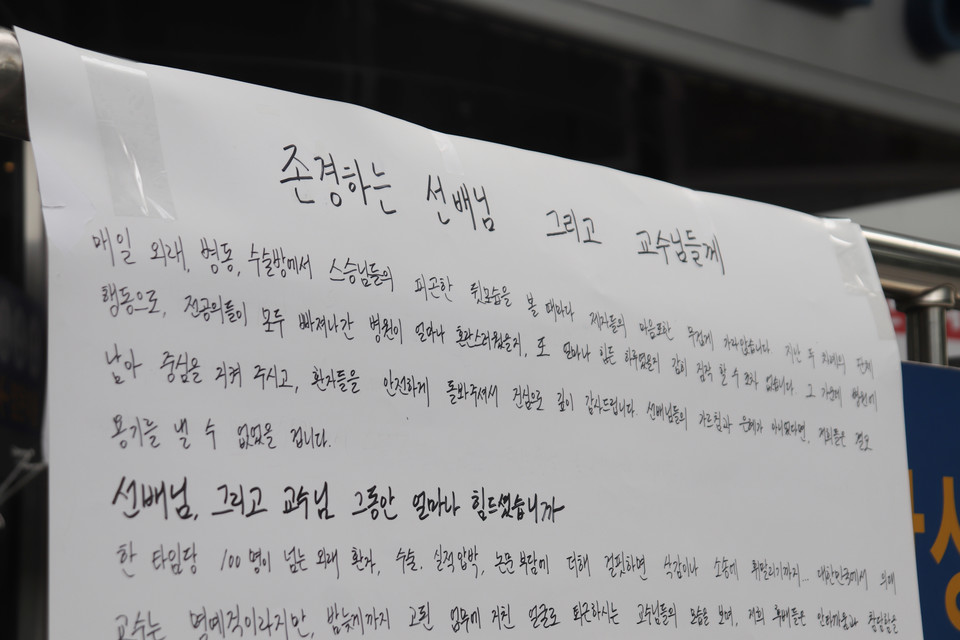 존경하는 선배님 그리고 교수님들께
매일 외래, 병동, 수술방에서 스승님들의 피곤한 뒷모습을 볼 때마다 제자들의 마음또한 무겁게 가라앉습니다. 지난 두 차례의 단체
행동으로, 전공의들이 모두 빠져나간 병원이 얼마나 혼란스러웠을지, 또 얼마나 힘든 하루였을지 감히 짐작 할 수 조차 없습니다. 그 가운데 병원에
남아 중심을 지켜 주시고, 환자들을 안전하게 돌봐주셔서 진심으로 깊이 감사드립니다. 선배님들의 가르침과 은혜가 아니었다면, 저희들은 결코
용기를 낼 수 없었을 겁니다.
선배님, 그리고 교수님 그동안 얼마나 힘드셨습니까
한 타임당 100명이 넘는 외래 환자, 수술, 실적압박, 논문 부담에 더해 걸핏하면 삭감이나 소송에 휘말리기까지... 대한민국에서 의대
교수는 명예직이라지만, 밤늦게까지 고된 업무에 지친 얼굴로 퇴근하시는 교수님들의 모습을 보며, 저희 후배들은 안타까움과 참담함을
상